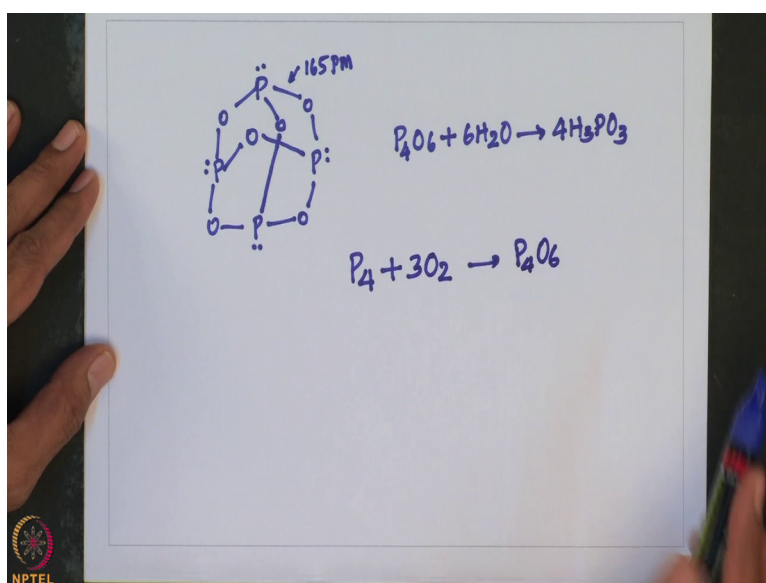 165 PM
P
O
O
O
O
:P
P:
O
P
O
P₄O₆ + 6H₂O → 4H₃PO₃
P₄ + 3O₂ → P₄O₆
NPTEL